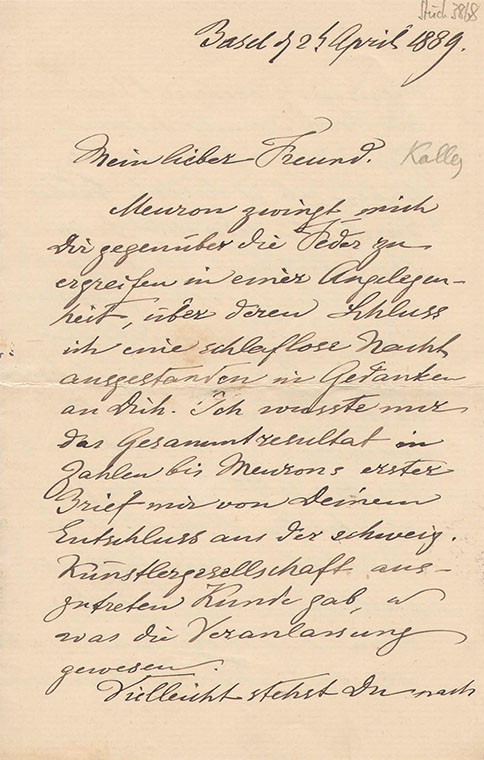 Stück 3868
Basel d 24 April 1889.
Mein lieber Freund.
Meuron zwingt mich
Dir gegenüber die Feder zu
ergreifen in einer Angelegen-
heit, über deren Schluss
ich eine schlaflose Nacht
ausgestanden in Gedanken
an Dich. Ich wusste nur
das Gesammtresultat in
Zahlen bis Meurons erster
Brief mir von Deinem
Entschluss aus der schweiz.
Künstlergesellschaft aus-
zutreten Kunde gab, u
was die Veranlassung
gewesen.
Vielleicht stehst Du nach